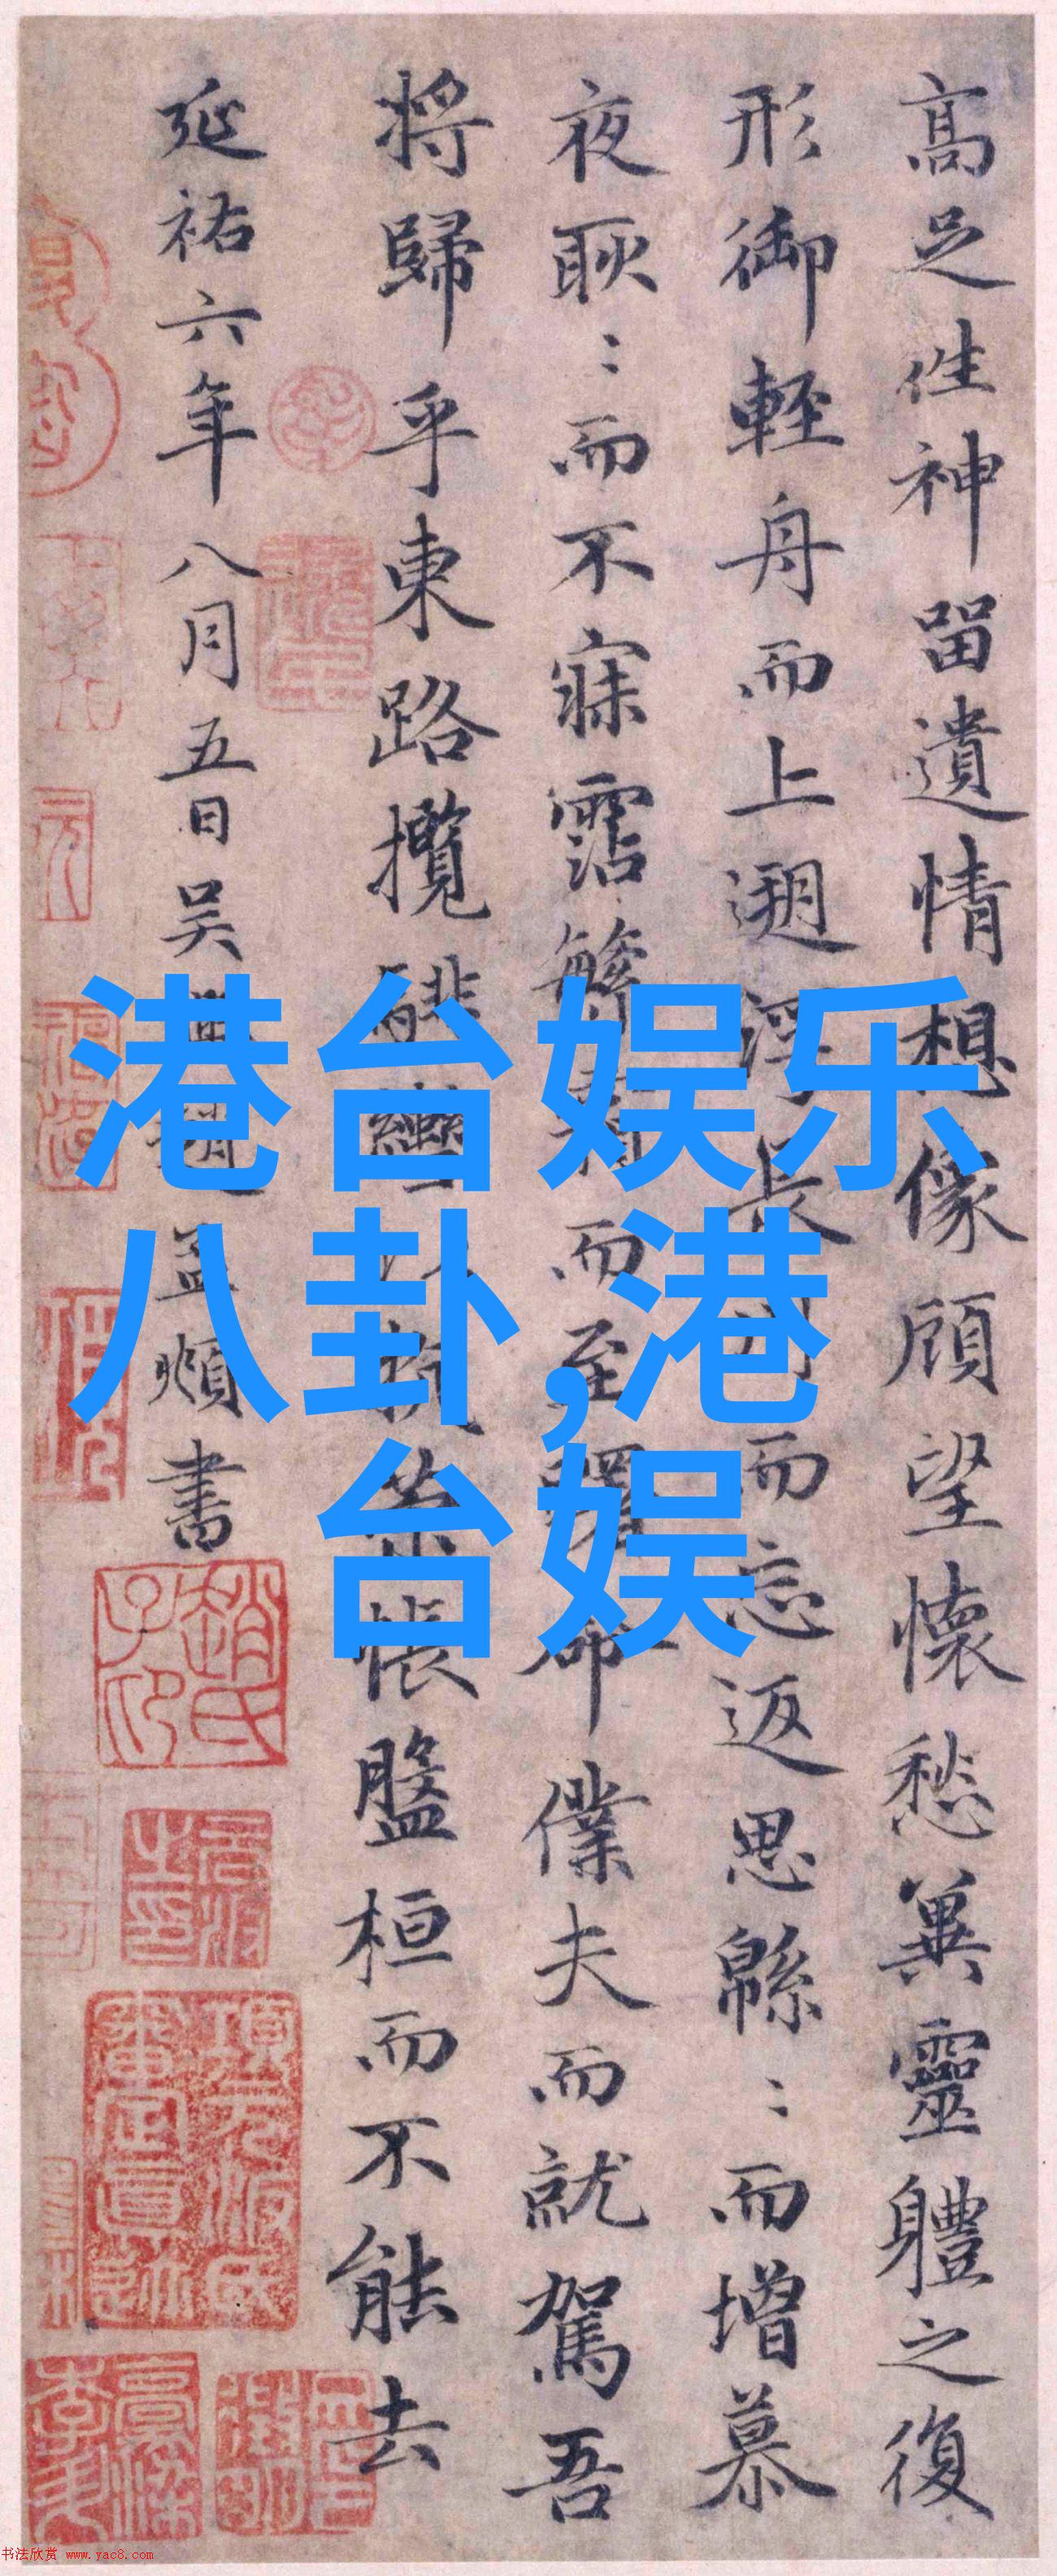 高足徃神留遺情想像顧望懷愁兾靈體之復
形御輕舟而上遡浮長川而忘返思緜〻而增慕
夜耿〻而不寐霑繁霜而至曙命僕夫而就駕吾
將歸乎東路攬騑轡以抗策悵盤桓而不能去
延祐六年八月五日吳興趙孟頫書
港台娱乐
八卦,港
台娱
书法欣赏 www.yac8.com